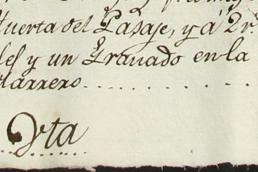 Huerta del Pasaje, y á 2r
les y un Granado en la
Marrero
Vta